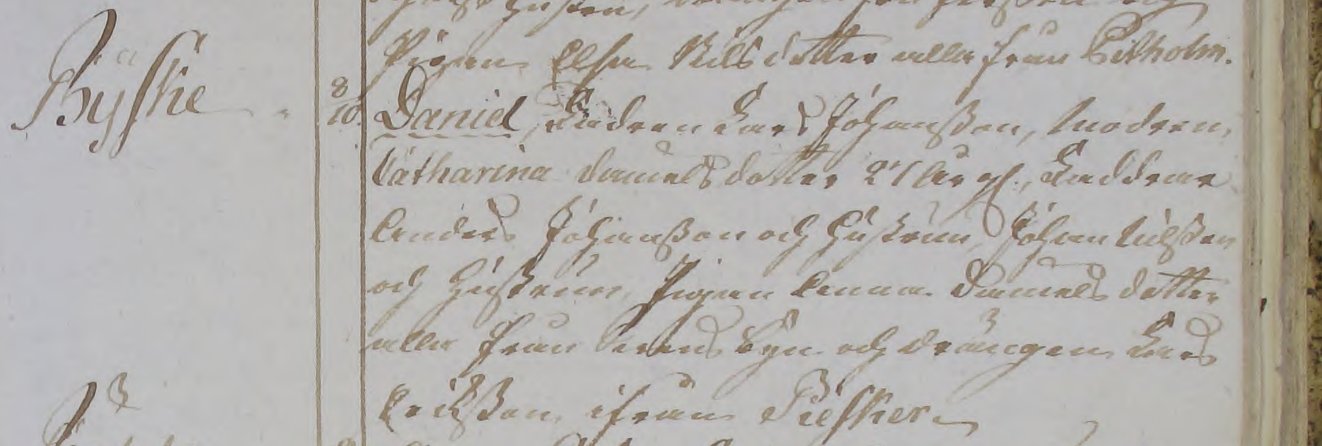 Pigan Elsa Nilsdotter alla från Pitholm.
Byske 8/10 Daniel, Fadren Lars Johansson, Modren,
Catharina Danielsdotter 27 år gl., Faddrar
Anders Johansson och Hustrun, Johan Nilsson
och Hustrun, Pigan Anna Danielsdotter
alla från byn och drängen Lars
Ericksson ifrån